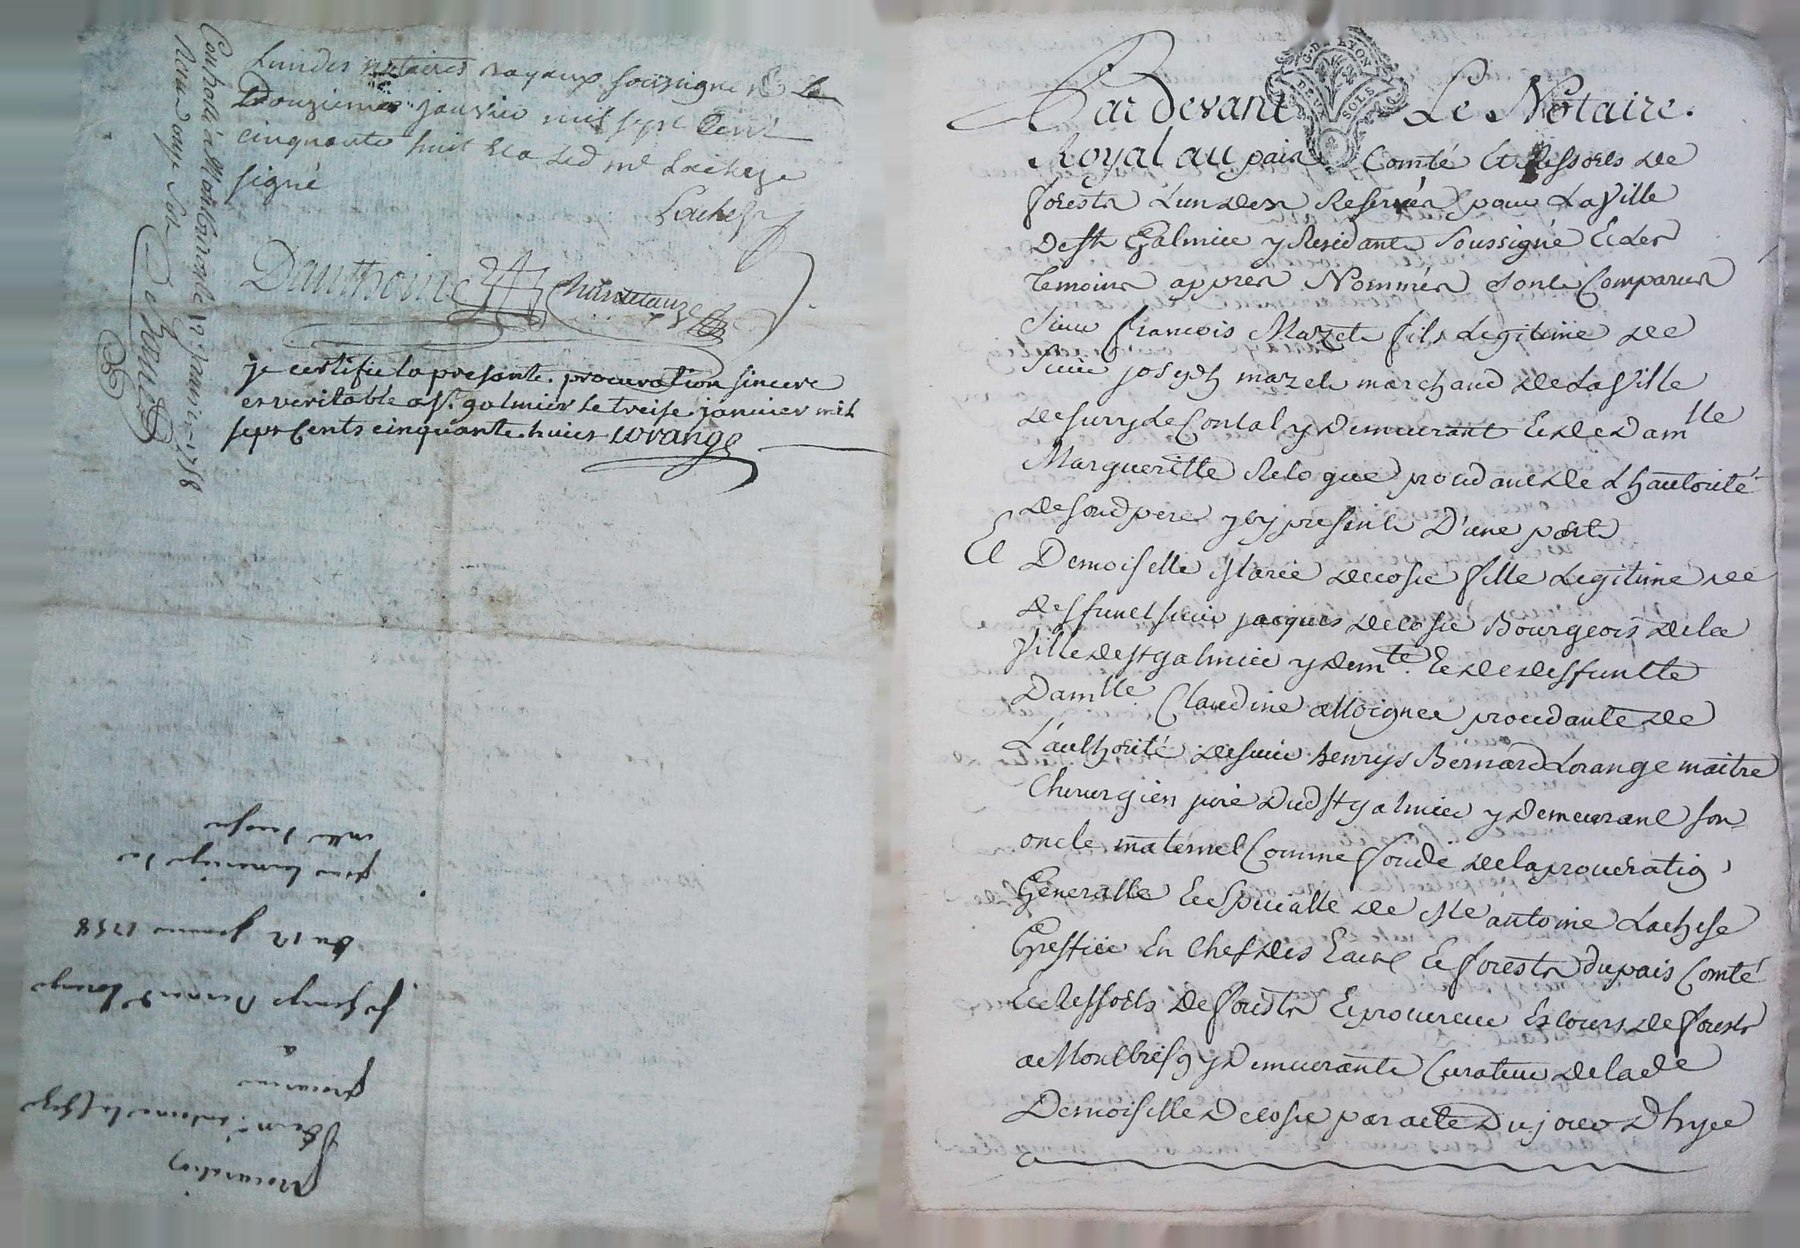 Lundes notaires royaux soussignés Le
Douzieme janvier mil sept Cent
cinquante huit Et a led me Lacheze
signé
Lacheze
Danthoine Chantelauze
je certifie la presente procuration sincere
et veritable a St galmier le treise janvier mil
sept Cents cinquante huict Lorange
Controllé a Montbrison le 12 janvier 1758
Receu onze sols
Procuration
De me antoine lacheze
procureur
a
Sr henrys Bernard Lorange
Du 12 janvier 1758
pour le mariage de
mlle decosie
G. D. LYON
DEUX SOLS
Par devant Le Notaire
Royal au pais Comté Et Ressorts De
forests Lun des Reservés pour La Ville
De St Galmier y Residant Soussigné Et des
temoins apprés Nommés sont Comparus
Sieur françois Mazet fils Legitime De
Sieur joseph mazet marchand De La Ville
De surry de Contal y Demeurant Et De Dam lle
Margueritte Relogue procedant de L hauthorité
De sond pere y cy present D'une part
Et Demoiselle Marie decosie fille Legitime de
deffunct sieur jacques decosie Bourgeois de la
Ville de St galmier y dem te. Et De deffuntte
Dam lle Claudine alloignee procedante De
L'authorité de sieur henrys Bernard Lorange maitre
Chirurgien juré Dud St galmier y Demeurant son
oncle maternel Comme fondé de la procuration
Generalle Et Specialle de Me antoine Lachese
Greffier En Chef des Eaux Et forests du pais Comté
Et Ressorts De forests Et procureur Es cours de forests
a Montbrison y Demeurante Curateur de la de
Demoiselle Decosie par acte Du jour D hyer